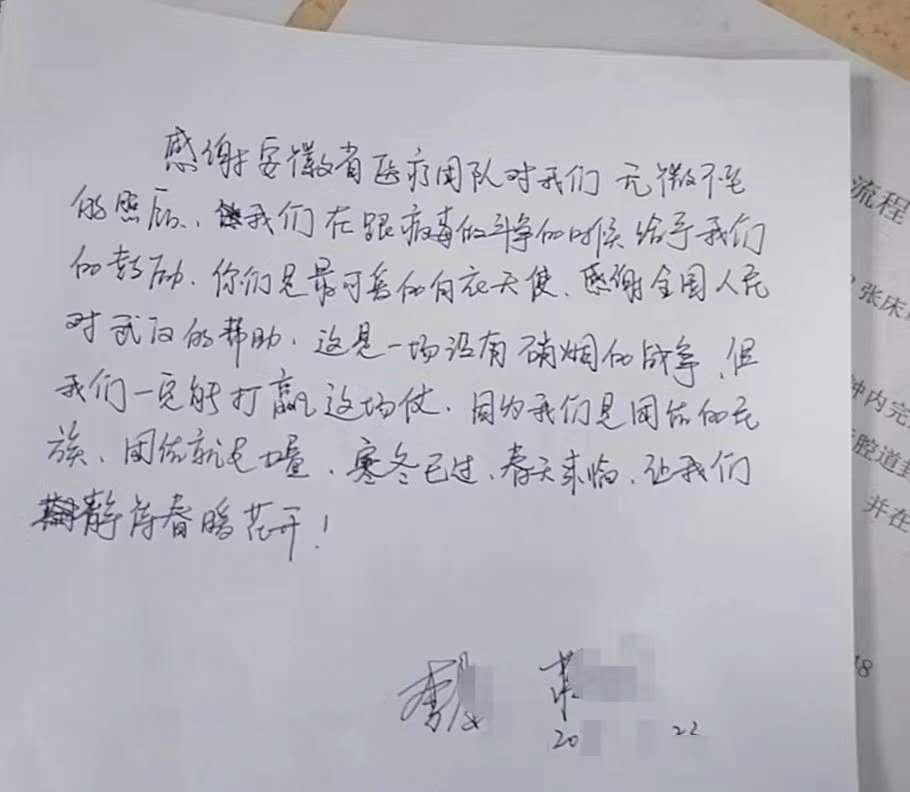 感谢安徽省医疗团队对我们无微不至
的照顾、我们在跟病毒做斗争的时候给予我们
的鼓励．你们是最可爱的白衣天使．感谢全国人民
对武汉的帮助．这是一场没有硝烟的战争．但
我们一定能打赢这场仗．因为我们是团结的民
族、团结就是力量．寒冬已过、春天来临．让我们
静待春暖花开！
李
20 22
流程
张床
钟内完
腔道
并在
18